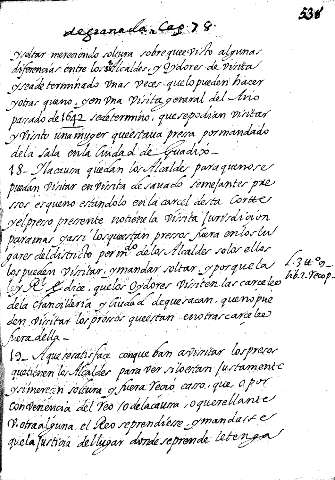 de granada. Cap. 78.
538
y soltar mereciendo soltura sobre que visto algunas
diferencias entre los Alcaldes, y Oydores de Visita
y sea determinado unas veces que lo pueden hacer
y otras que no, y en una Visita general del Año
pasado de 1642 se determino, que se podian visitar
y Visto una muger que estava pressa por mandado
de la Sala en la Ciudad de Guadix
18 - La causa que dan los Alcaldes para que no se
puedan Visitar en Visita de savado semejantes pre
ssos es que no estando los en la carcel desta Corte
y el preso presente no tiene la Visita Jurisdicion
para mas y assi los que estan pressos fuera en los lu
gares del districto por mdo de los Alcaldes solos ellos
los pueden Visitar, y mandar soltar, y porque la
ley Rl dice, que los Oydores Visiten las carceles
de la Chancilleria y Ciudad de que sacan, que no pue
den Visitar los presos que estan en otras carceles
fuera della
lib. 2 Recop.
19 - A que se satisface con que han a Visitar los presos
que tienen los Alcaldes para ver si lo estan Justamente
y si merecen soltura y fuera recio caso, que, o por
conveniencia del reo, o de la causa, o querellante
u otra alguna el Reo se prendiese, y mandasse
que la Justicia del lugar donde se prende le tenga